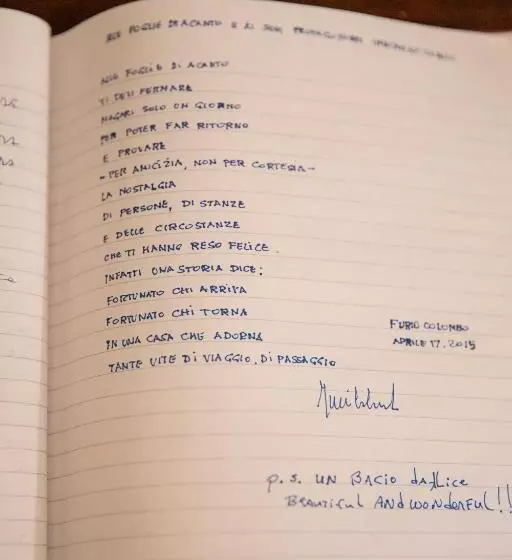 ALLE FOGLIE DI ACANTO E AI SUOI
ALLE FOGLIE DI ACANTO
TI DEVI FERMARE
MAGARI SOLO UN GIORNO
PER POTER FAR RITORNO
E PROVARE
- PER AMICIZIA, NON PER CORTESIA -
LA NOSTALGIA
DI PERSONE, DI STANZE
E DELLE CIRCOSTANZE
CHE TI HANNO RESO FELICE.
INFATTI UNA STORIA DICE:
FORTUNATO CHI ARRIVA
FORTUNATO CHI TORNA
IN UNA CASA CHE ADORNA
TANTE VITE DI VIAGGIO, DI PASSAGGIO
FURIO COLOMBO
APRILE 17, 2015
p.s. UN BACIO da Alice
BEAUTIFUL AND WONDERFUL!!